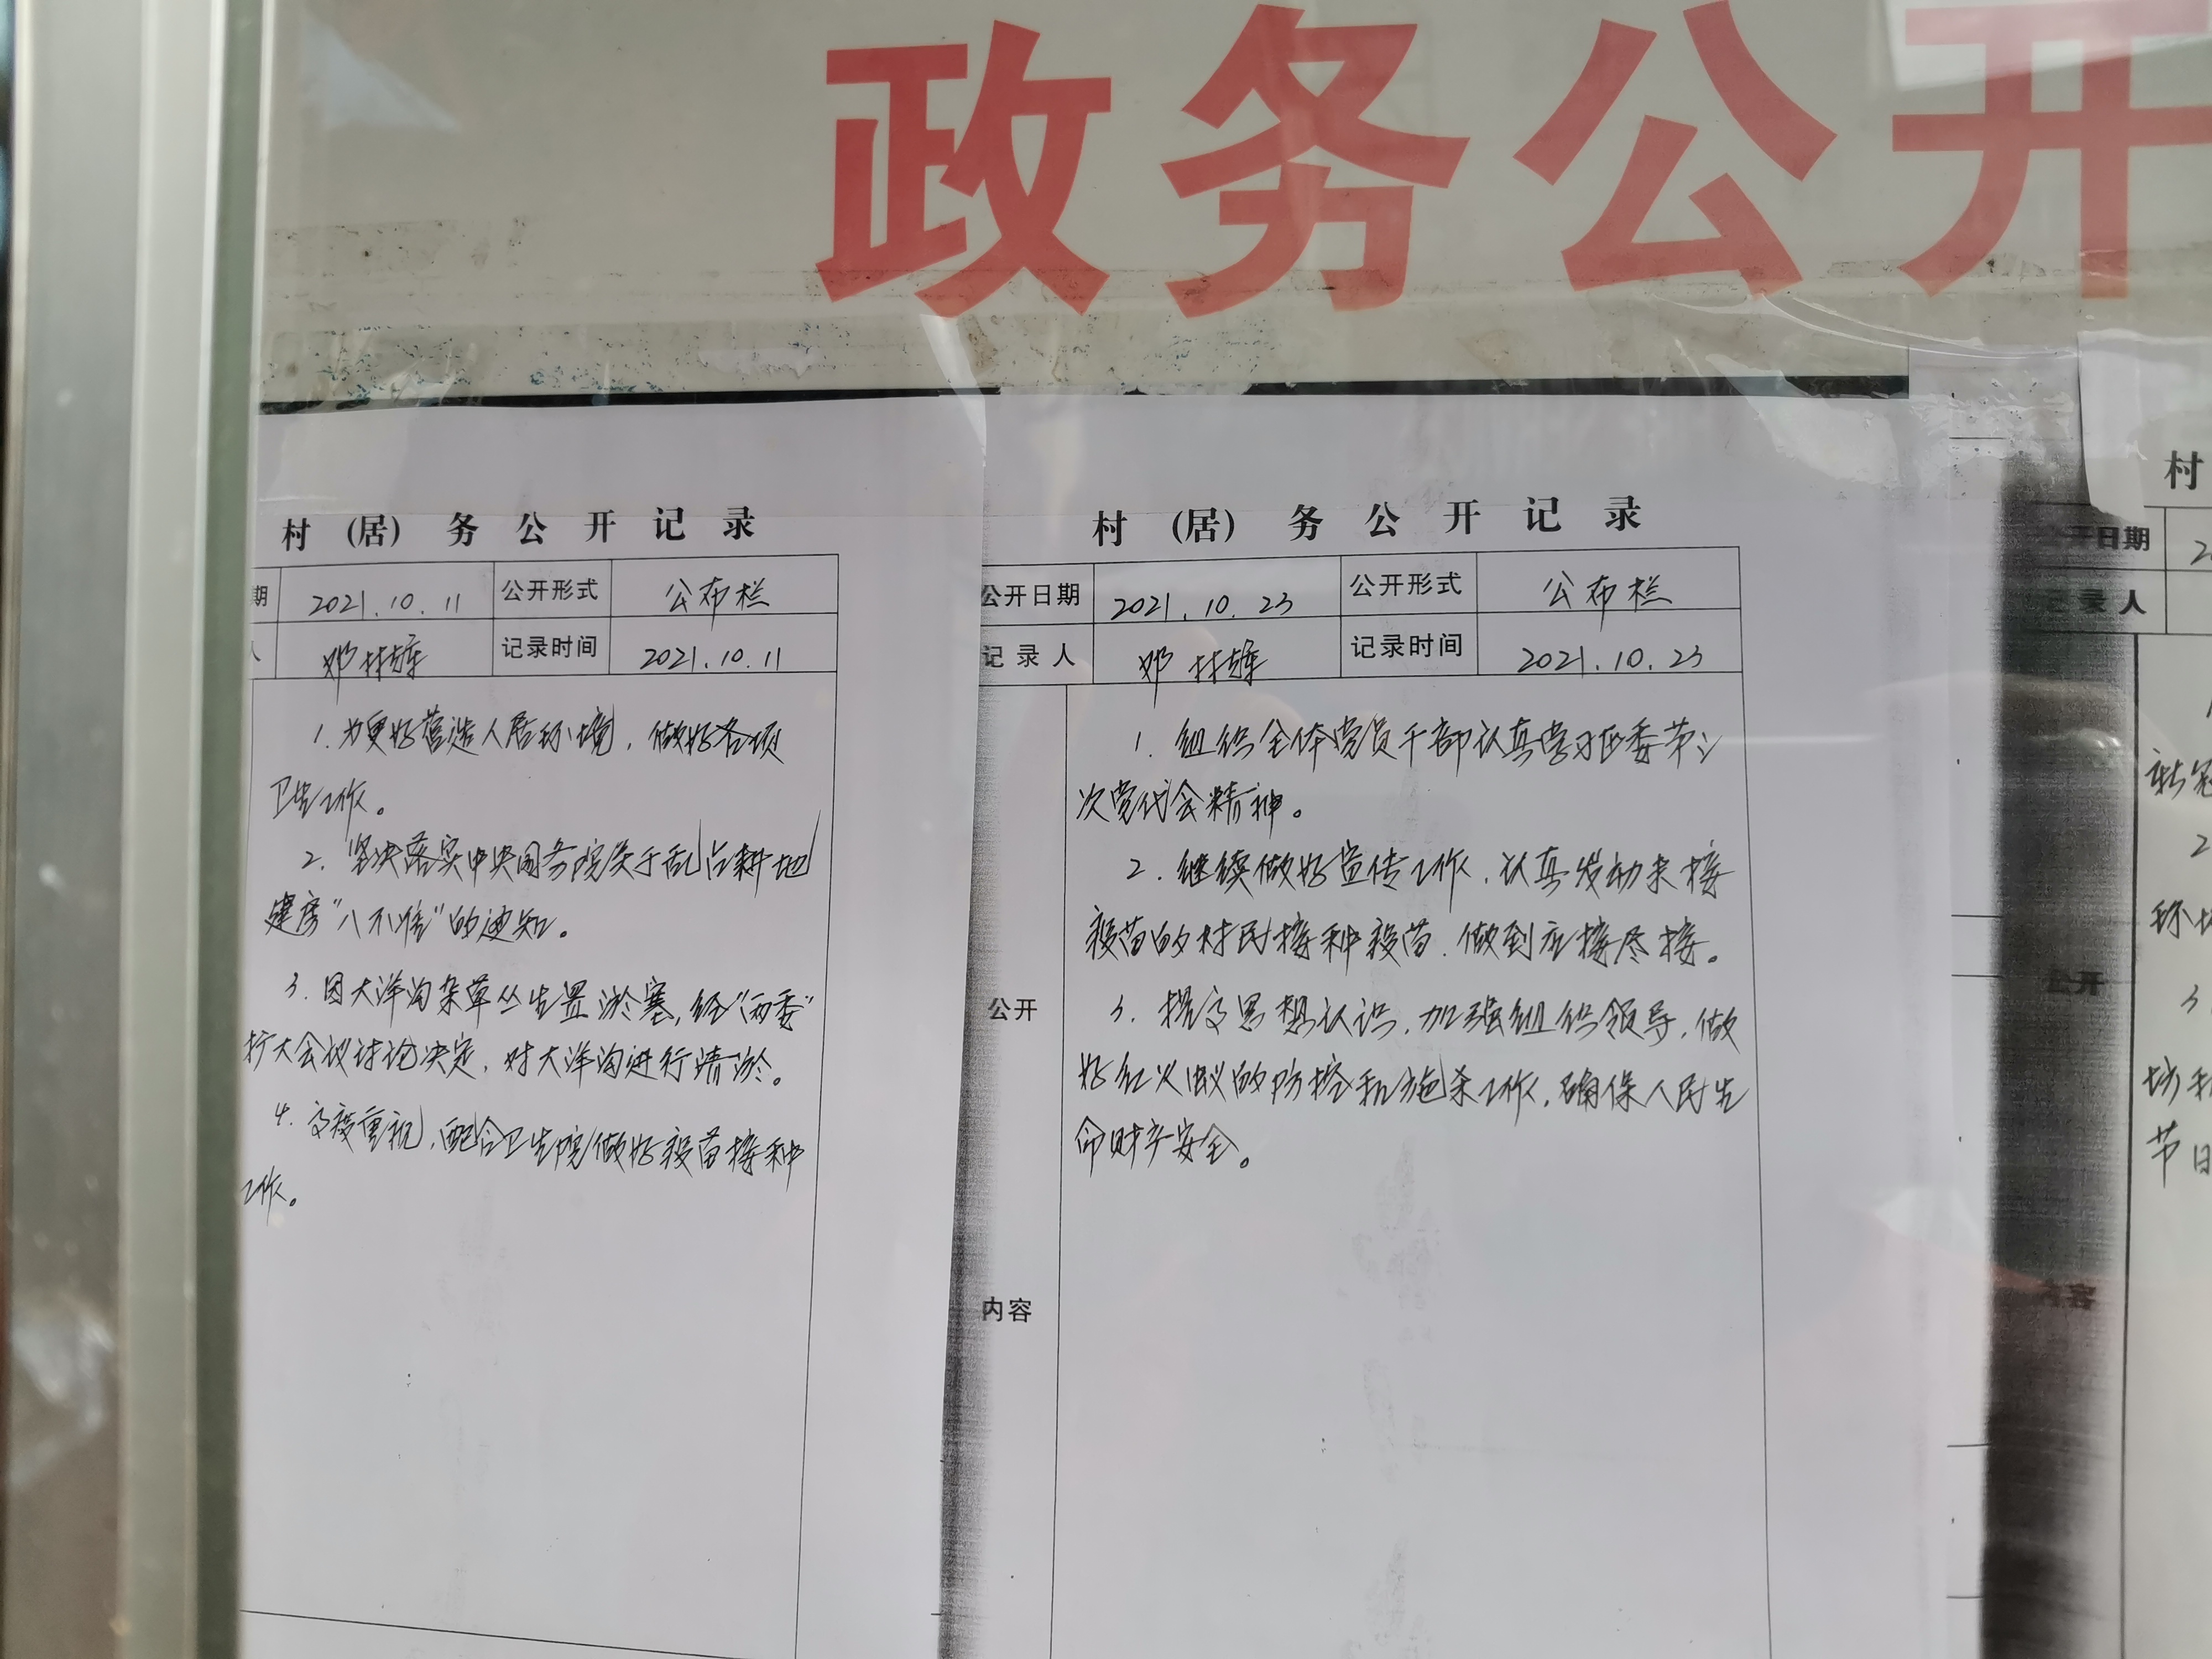 政务公开
村(居)务公开记录
期 2021.10.11 公开形式 公布栏
人 邓林辉 记录时间 2021.10.11
1.为更好营造人居环境,做好各项
卫生工作。
2.坚决落实中央国务院关于乱占耕地
建房“八不准”的通知。
3.因大洋沟杂草丛生置淤塞,经“两委”
扩大会议讨论决定,对大洋沟进行清淤。
4.高度重视,配合卫生院做好疫苗接种
工作。
村(居)务公开记录
公开日期 2021.10.23 公开形式 公布栏
记录人 邓林辉 记录时间 2021.10.23
公开
内容
1.组织全体党员干部认真学习区委第
次党代会精神。
2.继续做好宣传工作,认真发动未接
疫苗的村民接种疫苗,做到应接尽接。
3.提高思想认识,加强组织领导,做
好红火蚁的防控和施杀工作,确保人民生
命财产安全。
村
公开日期 2
记录人
公开
内容
新冠
2
环境
3
节日